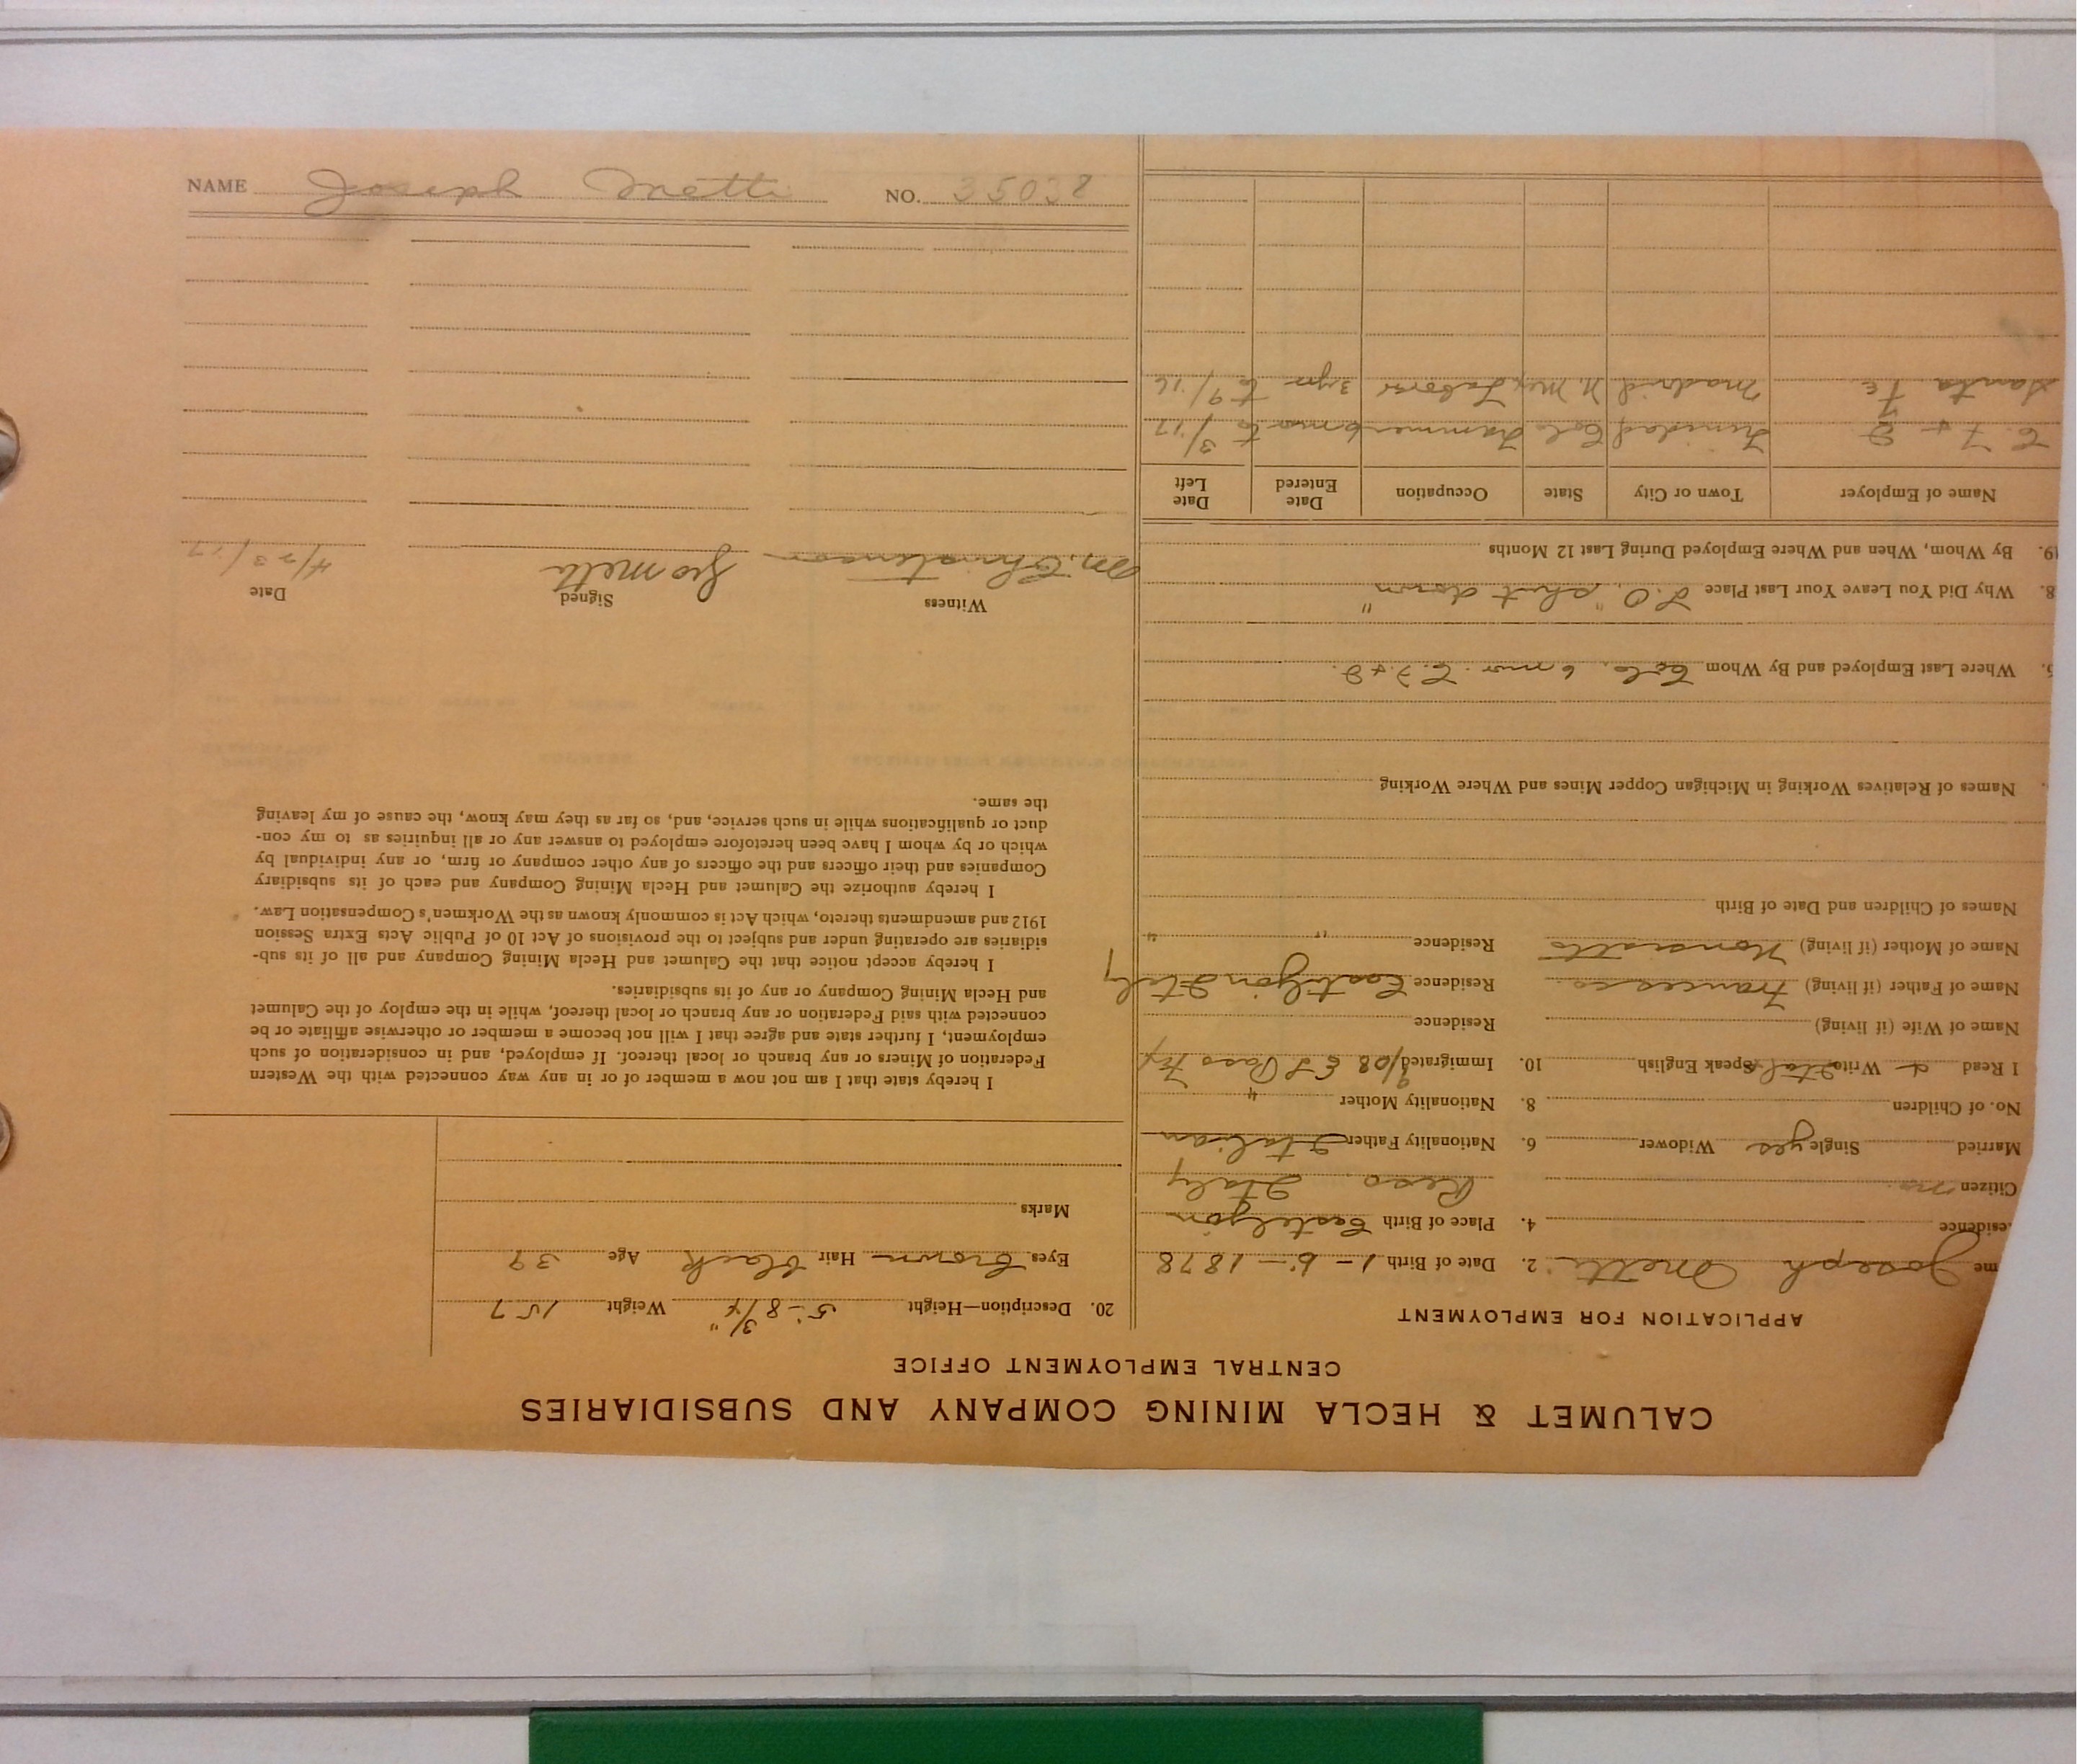 NAME Joseph Metti NO. 35038
CALUMET & HECLA MINING COMPANY AND SUBSIDIARIES
CENTRAL EMPLOYMENT OFFICE
APPLICATION FOR EMPLOYMENT
me Joseph Metti 2. Date of Birth 1-6-1878
esidence 4. Place of Birth
Citizen no Italy
Married Single yes Widower 6. Nationality Father Italian
No. of Children 8. Nationality Mother "
I Read & Write Ital Speak English 10. Immigrated 9/08
Name of Wife (if living) Residence
Name of Father (if living) Francesco Residence Italy
Name of Mother (if living) Residence " "
Names of Children and Date of Birth
Names of Relatives Working in Michigan Copper Mines and Where Working
5. Where Last Employed and By Whom Colo. 6 mos. C.F.&I.
8. Why Did You Leave Your Last Place I.O. "shut down"
19. By Whom, When and Where Employed During Last 12 Months
Name of Employer Town or City State Occupation Date Entered Date Left
C. F. & I Trinidad Colo Trammer 6 mos to 3/17
Santa Fe Madrid N. Mex. Laborer 3 yrs to 9/16
20. Description—Height 5'-8 3/4" Weight 157
Eyes brown Hair black Age 39
Marks
I hereby state that I am not now a member of or in any way connected with the Western
Federation of Miners or any branch or local thereof. If employed, and in consideration of such
employment, I further state and agree that I will not become a member or otherwise affiliate or be
connected with said Federation or any branch or local thereof, while in the employ of the Calumet
and Hecla Mining Company or any of its subsidiaries.
I hereby accept notice that the Calumet and Hecla Mining Company and all of its sub-
sidiaries are operating under and subject to the provisions of Act 10 of Public Acts Extra Session
1912 and amendments thereto, which Act is commonly known as the Workmen's Compensation Law.
I hereby authorize the Calumet and Hecla Mining Company and each of its subsidiary
Companies and their officers and the officers of any other company or firm, or any individual by
which or by whom I have been heretofore employed to answer any or all inquiries as to my con-
duct or qualifications while in such service, and, so far as they may know, the cause of my leaving
the same.
Witness Signed Date
M. Christenson Geo Metti 4/23/17